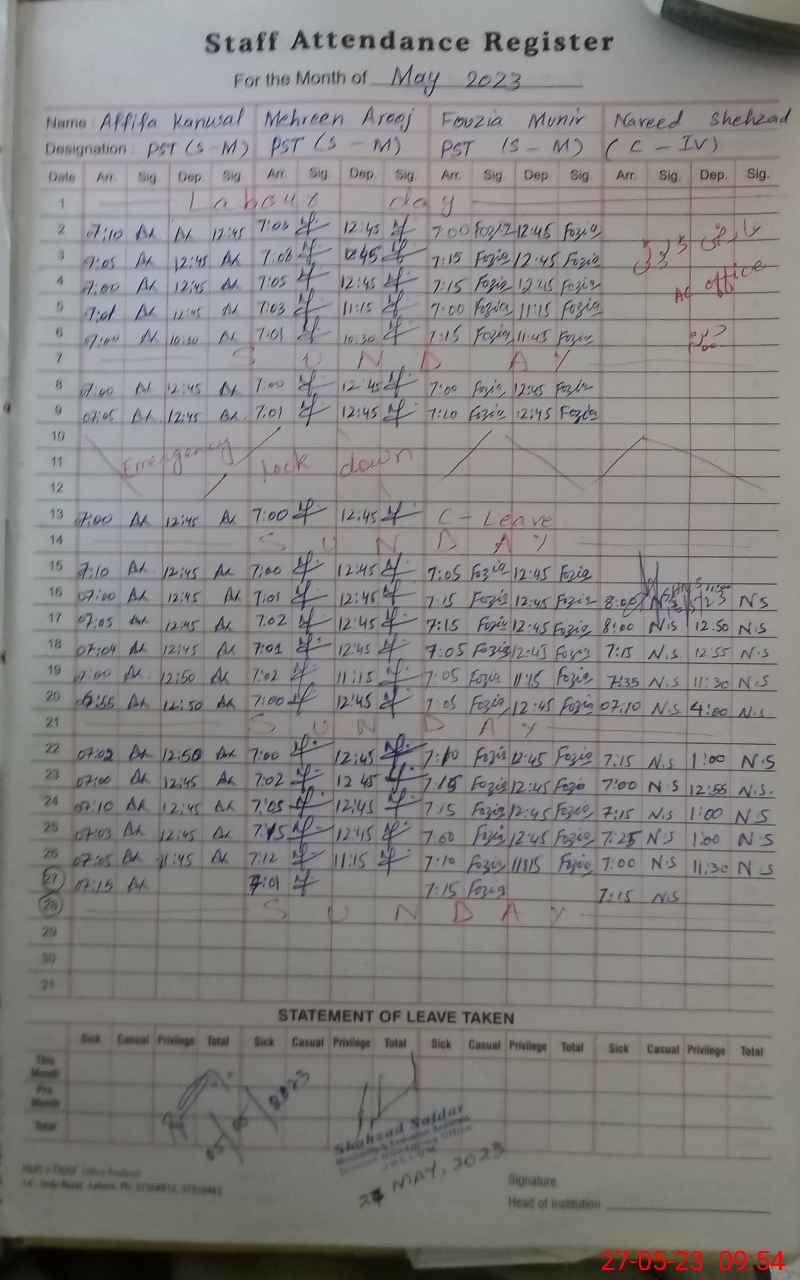 Staff Attendance Register
For the Month of May 2023
Name : Affifa Kanwal Mehreen Arooj Fouzia Munir Naveed Shehzad
Designation : PST (S-M) PST (S-M) PST (S-M) (C-IV)
Date Arr. Sig. Dep. Sig. Arr. Sig. Dep. Sig. Arr. Sig. Dep. Sig. Arr. Sig. Dep. Sig.
1 Labour day
2 07:10 12:45 7:05 12:45 7:00 Fozia 12:45 Fozia عارضی
3 07:05 12:45 7:08 12:45 7:15 Fozia 12:45 Fozia
4 07:00 12:45 7:05 12:45 7:15 Fozia 12:45 Fozia AC office
5 7:01 12:45 7:03 11:15 7:00 Fozia 11:15 Fozia
6 07:00 10:30 7:01 10:30 7:15 Fozia 11:45 Fozia
7 SUNDAY
8 07:00 12:45 7:00 12:45 7:00 Fozia 12:45 Fozia
9 07:05 12:45 7:01 12:45 7:10 Fozia 12:45 Fozia
10
11 Emergency lock down
12
13 7:00 12:45 7:00 12:45 C-Leave
14 SUNDAY
15 7:10 12:45 7:00 12:45 7:05 Fozia 12:45 Fozia
16 07:00 12:45 7:01 12:45 7:15 Fozia 12:45 Fozia 8:00 N.S
17 07:05 12:45 7:02 12:45 7:15 Fozia 12:45 Fozia 8:00 N.S 12:50 N.S
18 07:04 12:45 7:01 12:45 7:05 Fozia 12:45 Fozia 7:15 N.S 12:55 N.S
19 7:00 12:50 7:02 11:15 7:05 Fozia 11:15 Fozia 7:35 N.S 11:30 N.S
20 6:55 12:50 7:00 12:45 7:05 Fozia 12:45 Fozia 07:10 N.S 4:00 N.S
21 SUNDAY
22 07:02 12:50 7:00 12:45 7:10 Fozia 12:45 Fozia 7:15 N.S 1:00 N.S
23 07:00 12:45 7:02 12 45 7:15 Fozia 12:45 Fozia 7:00 N S 12:55 N.S.
24 07:10 12:45 7:05 12:45 7:15 Fozia 12:45 Fozia 7:15 N.S 1:00 N S
25 07:03 12:45 7:15 12:45 7:00 Fozia 12:45 Fozia 7:25 N.S 1:00 N.S
26 07:05 11:45 7:12 11:15 7:10 Fozia 11:15 Fozia 7:00 N.S 11:30 N S
27 07:15 7:01 7:15 Fozia 7:15 N.S
28 SUNDAY
29
30
31
STATEMENT OF LEAVE TAKEN
Sick Casual Privilege Total Sick Casual Privilege Total Sick Casual Privilege Total Sick Casual Privilege Total
This Month
Pre Month
Total
05/05/2023
Shahzad Safdar
27 MAY, 2023
Signature
Head of Institution
27-05-23 09:54